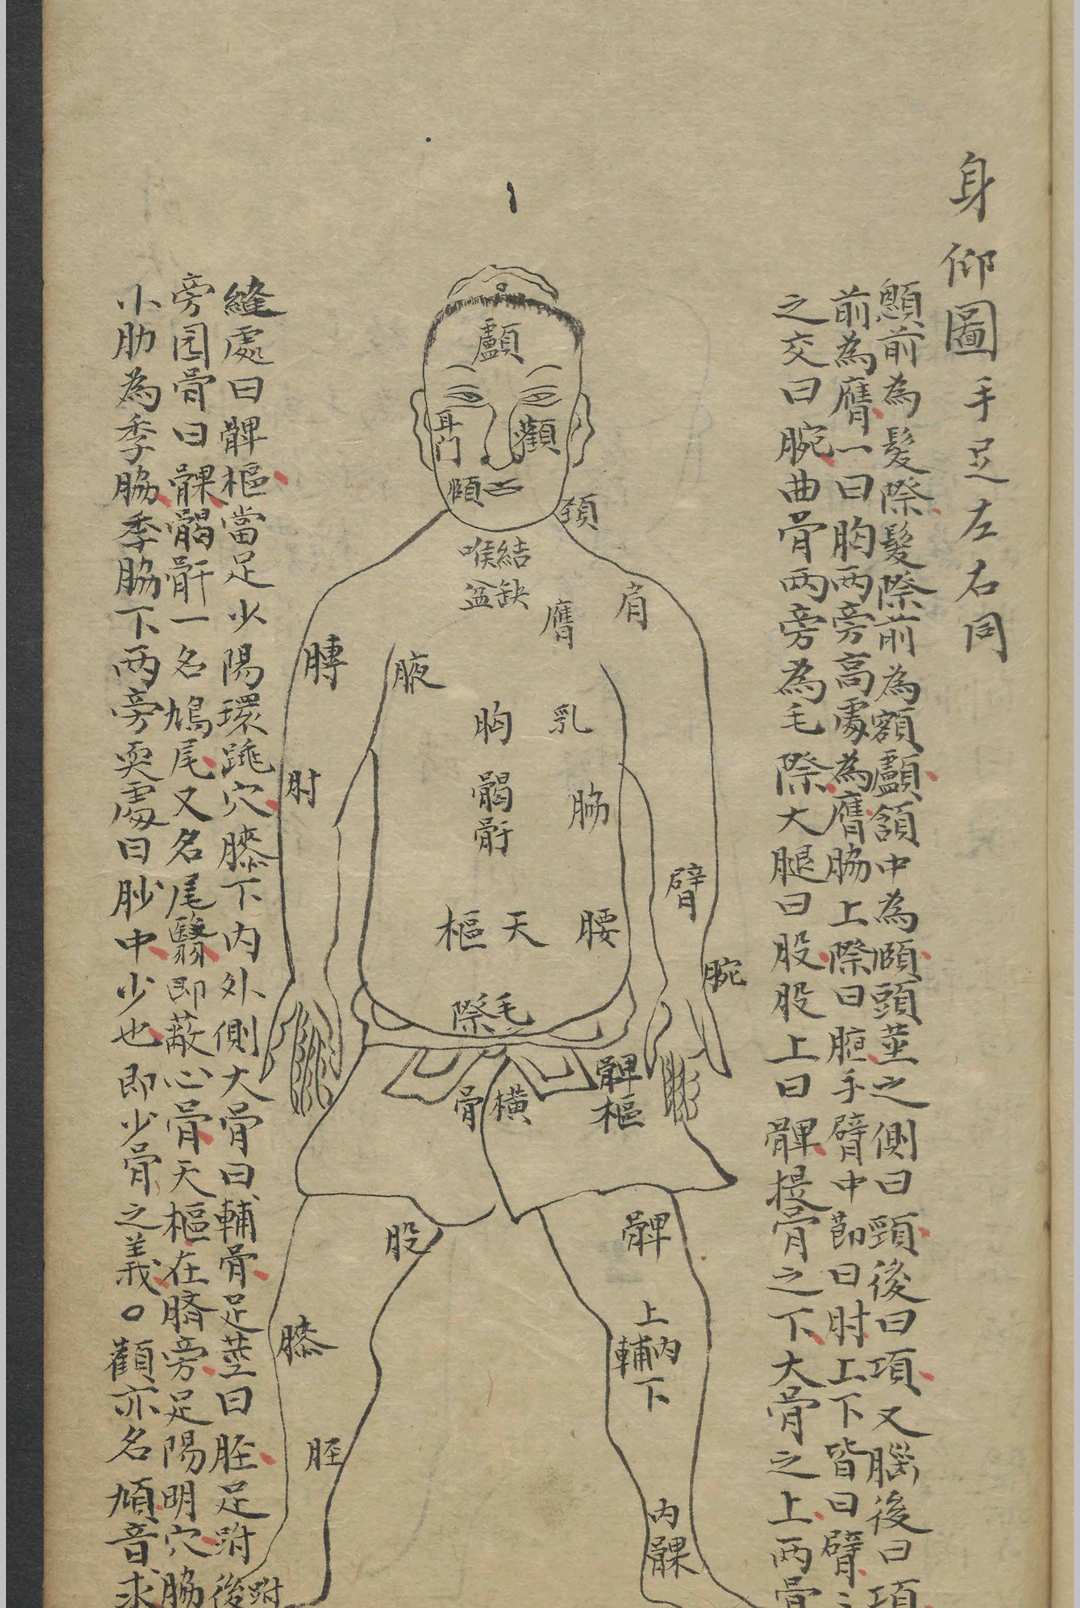 身仰圖手足左右同
顖前為髮際髮際前為額顱額中為頄頭莖之側曰頸後曰項又腦後曰項
前為膺一曰胸兩旁高處為膺脇上際曰腋手臂中節曰肘上下皆曰臂
之交曰腕曲骨兩旁為毛際大腿曰股股上曰髀揵骨之下大骨之上兩骨
縫處曰髀樞當足少陽環跳穴膝下內外側大骨曰輔骨足莖曰胫足跗後
旁囩骨曰髁𩩲骬一名鳩尾又名尾翳即蔽心骨天樞在臍旁足陽明穴脇
小肋為季脇季脇下兩旁耎處曰䏚中少也即少骨之義。顴亦名頄音求
顱
耳門
顴
頄
頸
結喉
缺盆
膺
肩
膊
腋
胸
乳
肘
𩩲骬
脇
臂
天樞
腰
腕
毛際
橫骨
髀樞
股
髀
膝
上內下輔
胫
內髁
跗